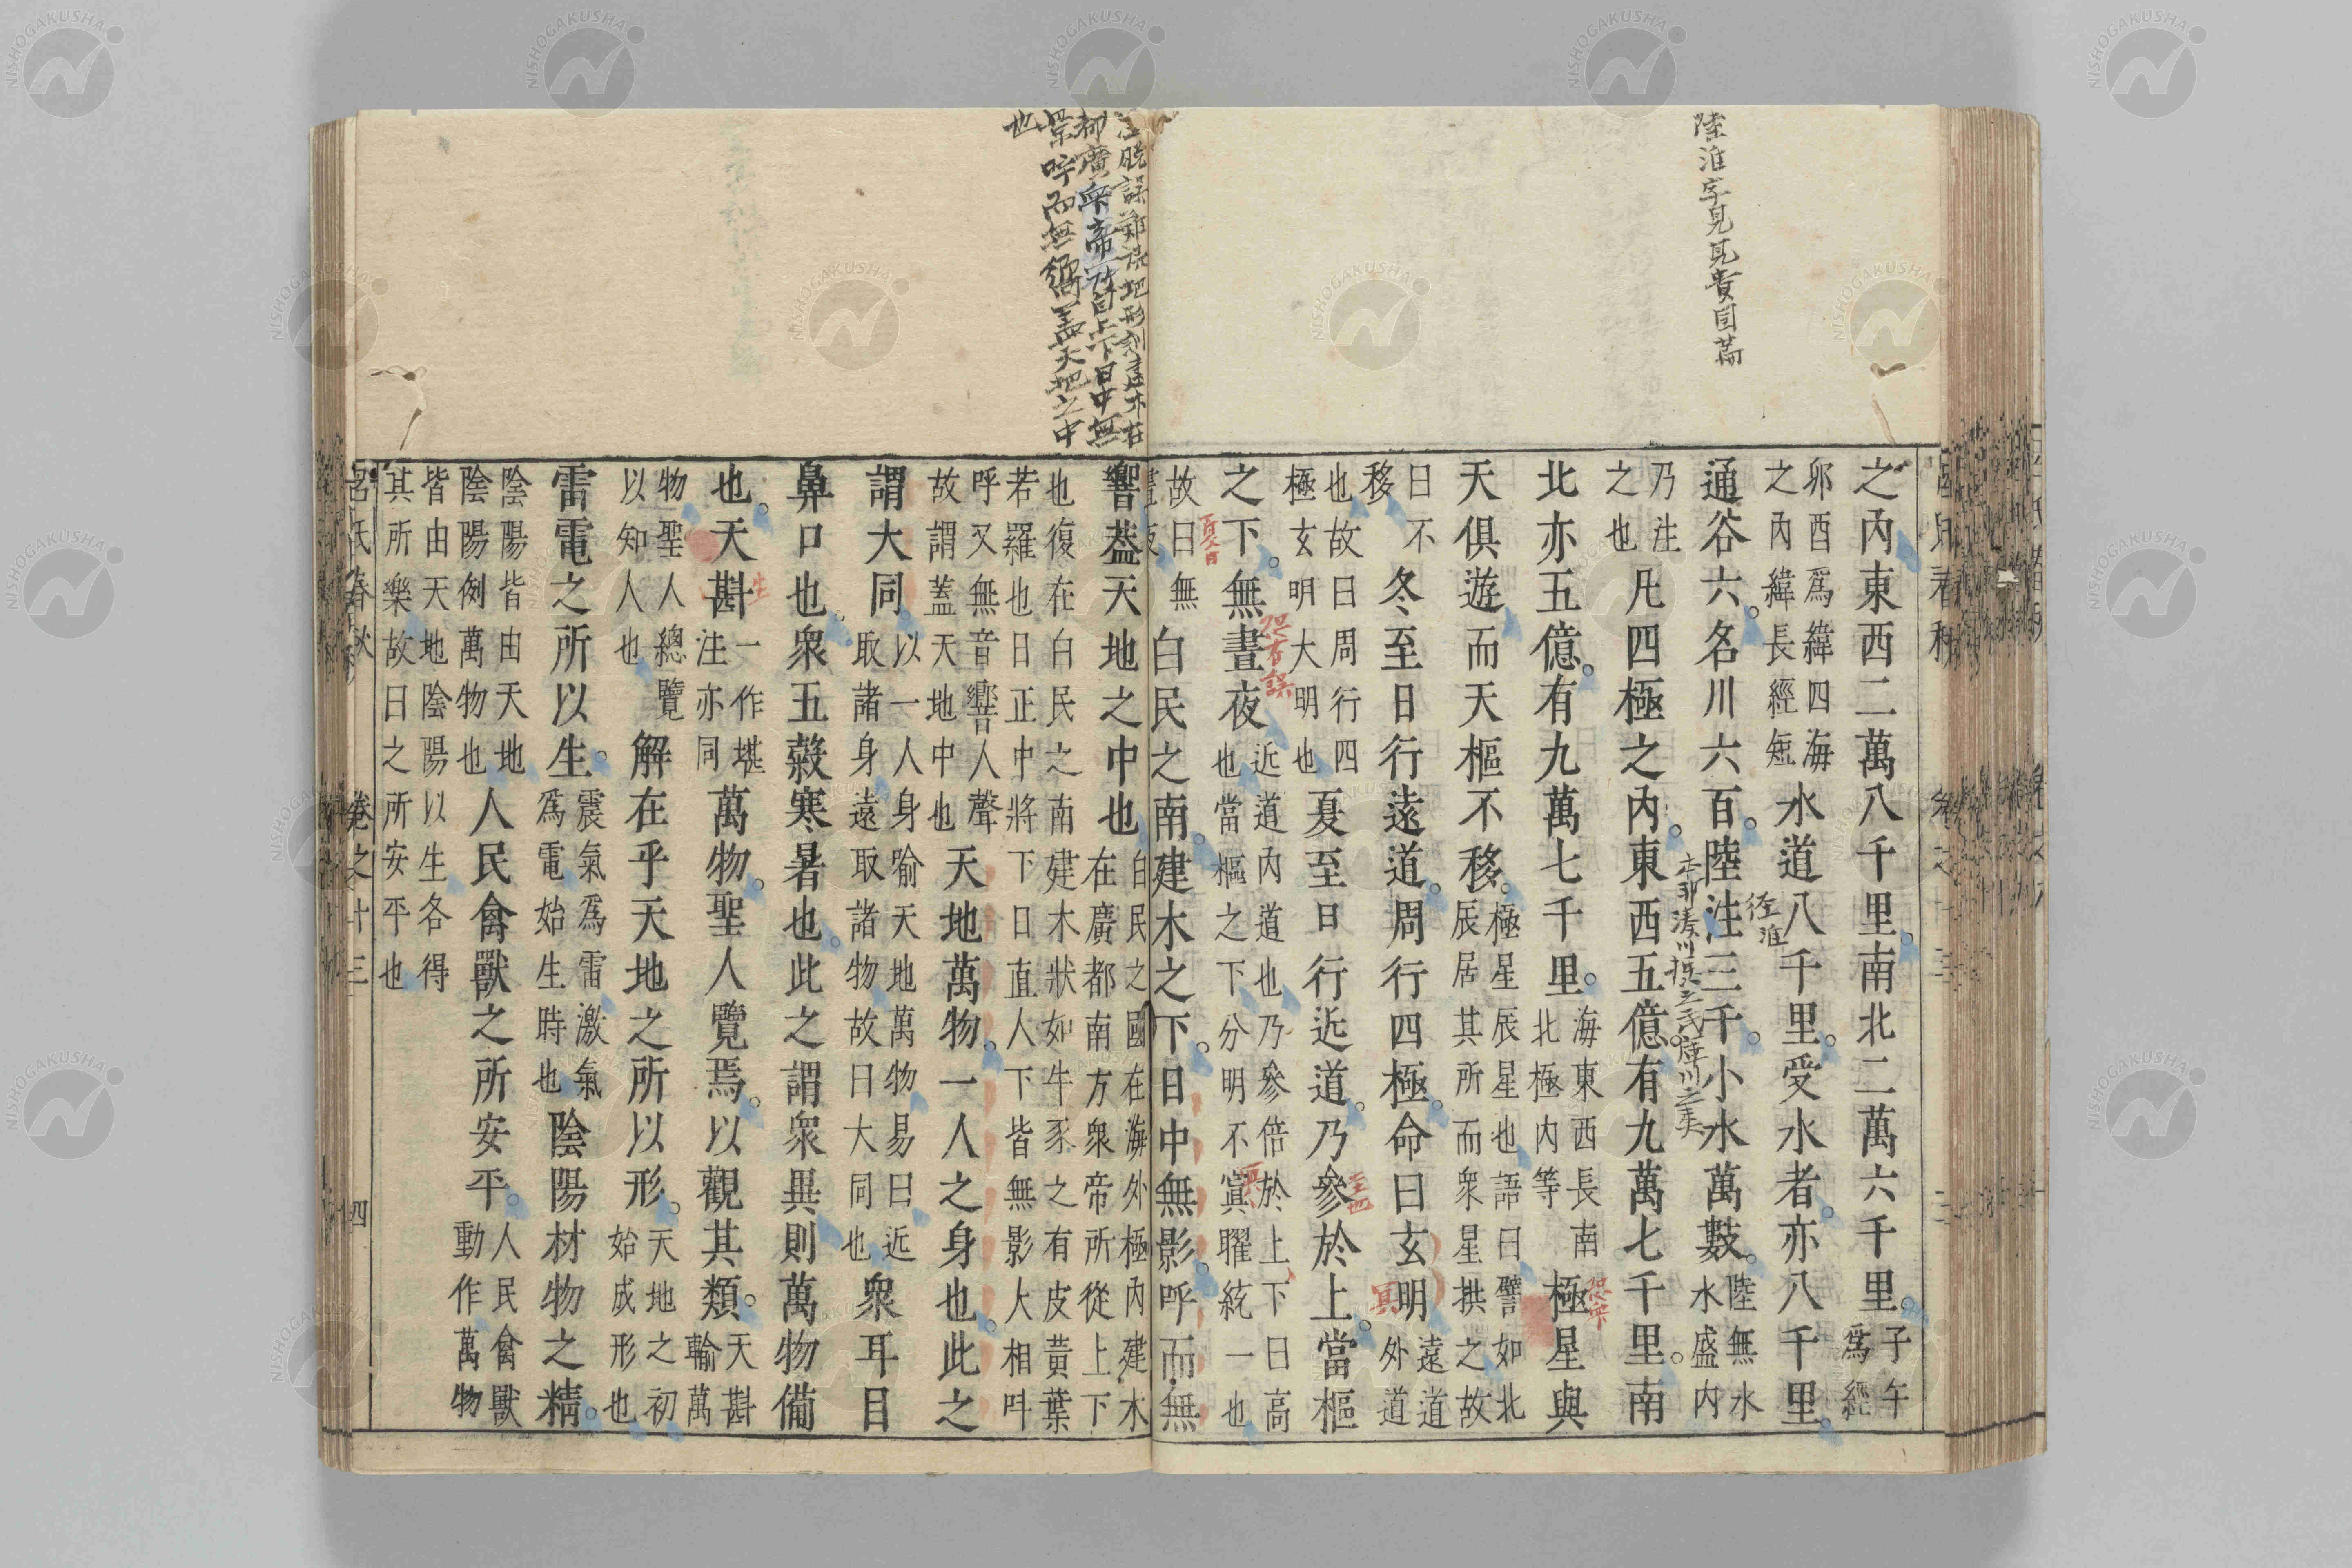 陸淮字見貴因篇
之內東西二萬八千里南北二萬六千里。子午爲經
卯酉爲緯四海之內緯長經短水道八千里。受水者。亦八千里。
通谷六。名川六百。陸注三千。小水萬數。陸無水水盛內
乃注之也凡四極之內。東西五億。有九萬七千里。南
北亦五億。有九萬七千里。海東西長南北極內等極星與
天俱遊而天樞不移。極星辰星也語曰譬如北辰居其所而衆星拱之故
曰不移冬至日行遠道。周行四極。命曰玄明遠道外道
也故曰周行四極玄明大明也夏至日行近道。乃參於上。當樞
之下。無晝夜近道內道也乃參倍於上下曰高也當樞之下分明不寘曜統一也
故曰無晝夜白民之南。建木之下。日中無影。呼而無
響蓋天地之中也白民之國在海外極內建木在廣都南方衆帝所從上下
也復在白民之南建木狀如牛豕之有皮黃葉
若羅也日正中將下日直人下皆無影大相呌
呼又無音響人聲故謂蓋天地中也天地萬物。一人之身也。此之
謂大同以一人身喻天地萬物易曰近取諸身遠取諸物故曰大同也衆耳目
鼻口也。衆五榖寒暑也。此之謂衆異則萬物備
也。天斟一作堪注亦同萬物。聖人覽焉。以觀其類。天斟輸萬
物聖人總覽以知人也解在乎天地之所以形。天地之初始成形也
雷電之所以生。震氣爲雷激氣爲電始生時也陰陽材物之精。
陰陽皆由天地陰陽例萬物也人民禽獸之所安平。人民禽獸動作萬物
皆由天地陰陽以生各得其所樂故曰之所安平也
呂氏春秋 卷之十三 四